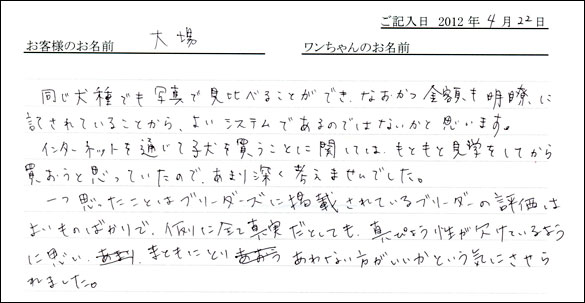 ご記入日 2012年4月22日
お客様のお名前 大場 ワンちゃんのお名前
同じ犬種でも写真で見比べることができ、なおかつ金額も明瞭に
記されていることから、よいシステムであるのではないかと思います。
インターネットを通じて子犬を買うことに関しては、もともと見学をしてから
買おうと思っていたので、あまり深く考えませんでした。
一つ思ったことはブリーダーズに掲載されているブリーダーの評価は
よいものばかりで、仮りに全て真実だとしても、真ぴょう性が欠けているよう
に思い、まともにとり あわない方がいいかという気にさせら
れました。